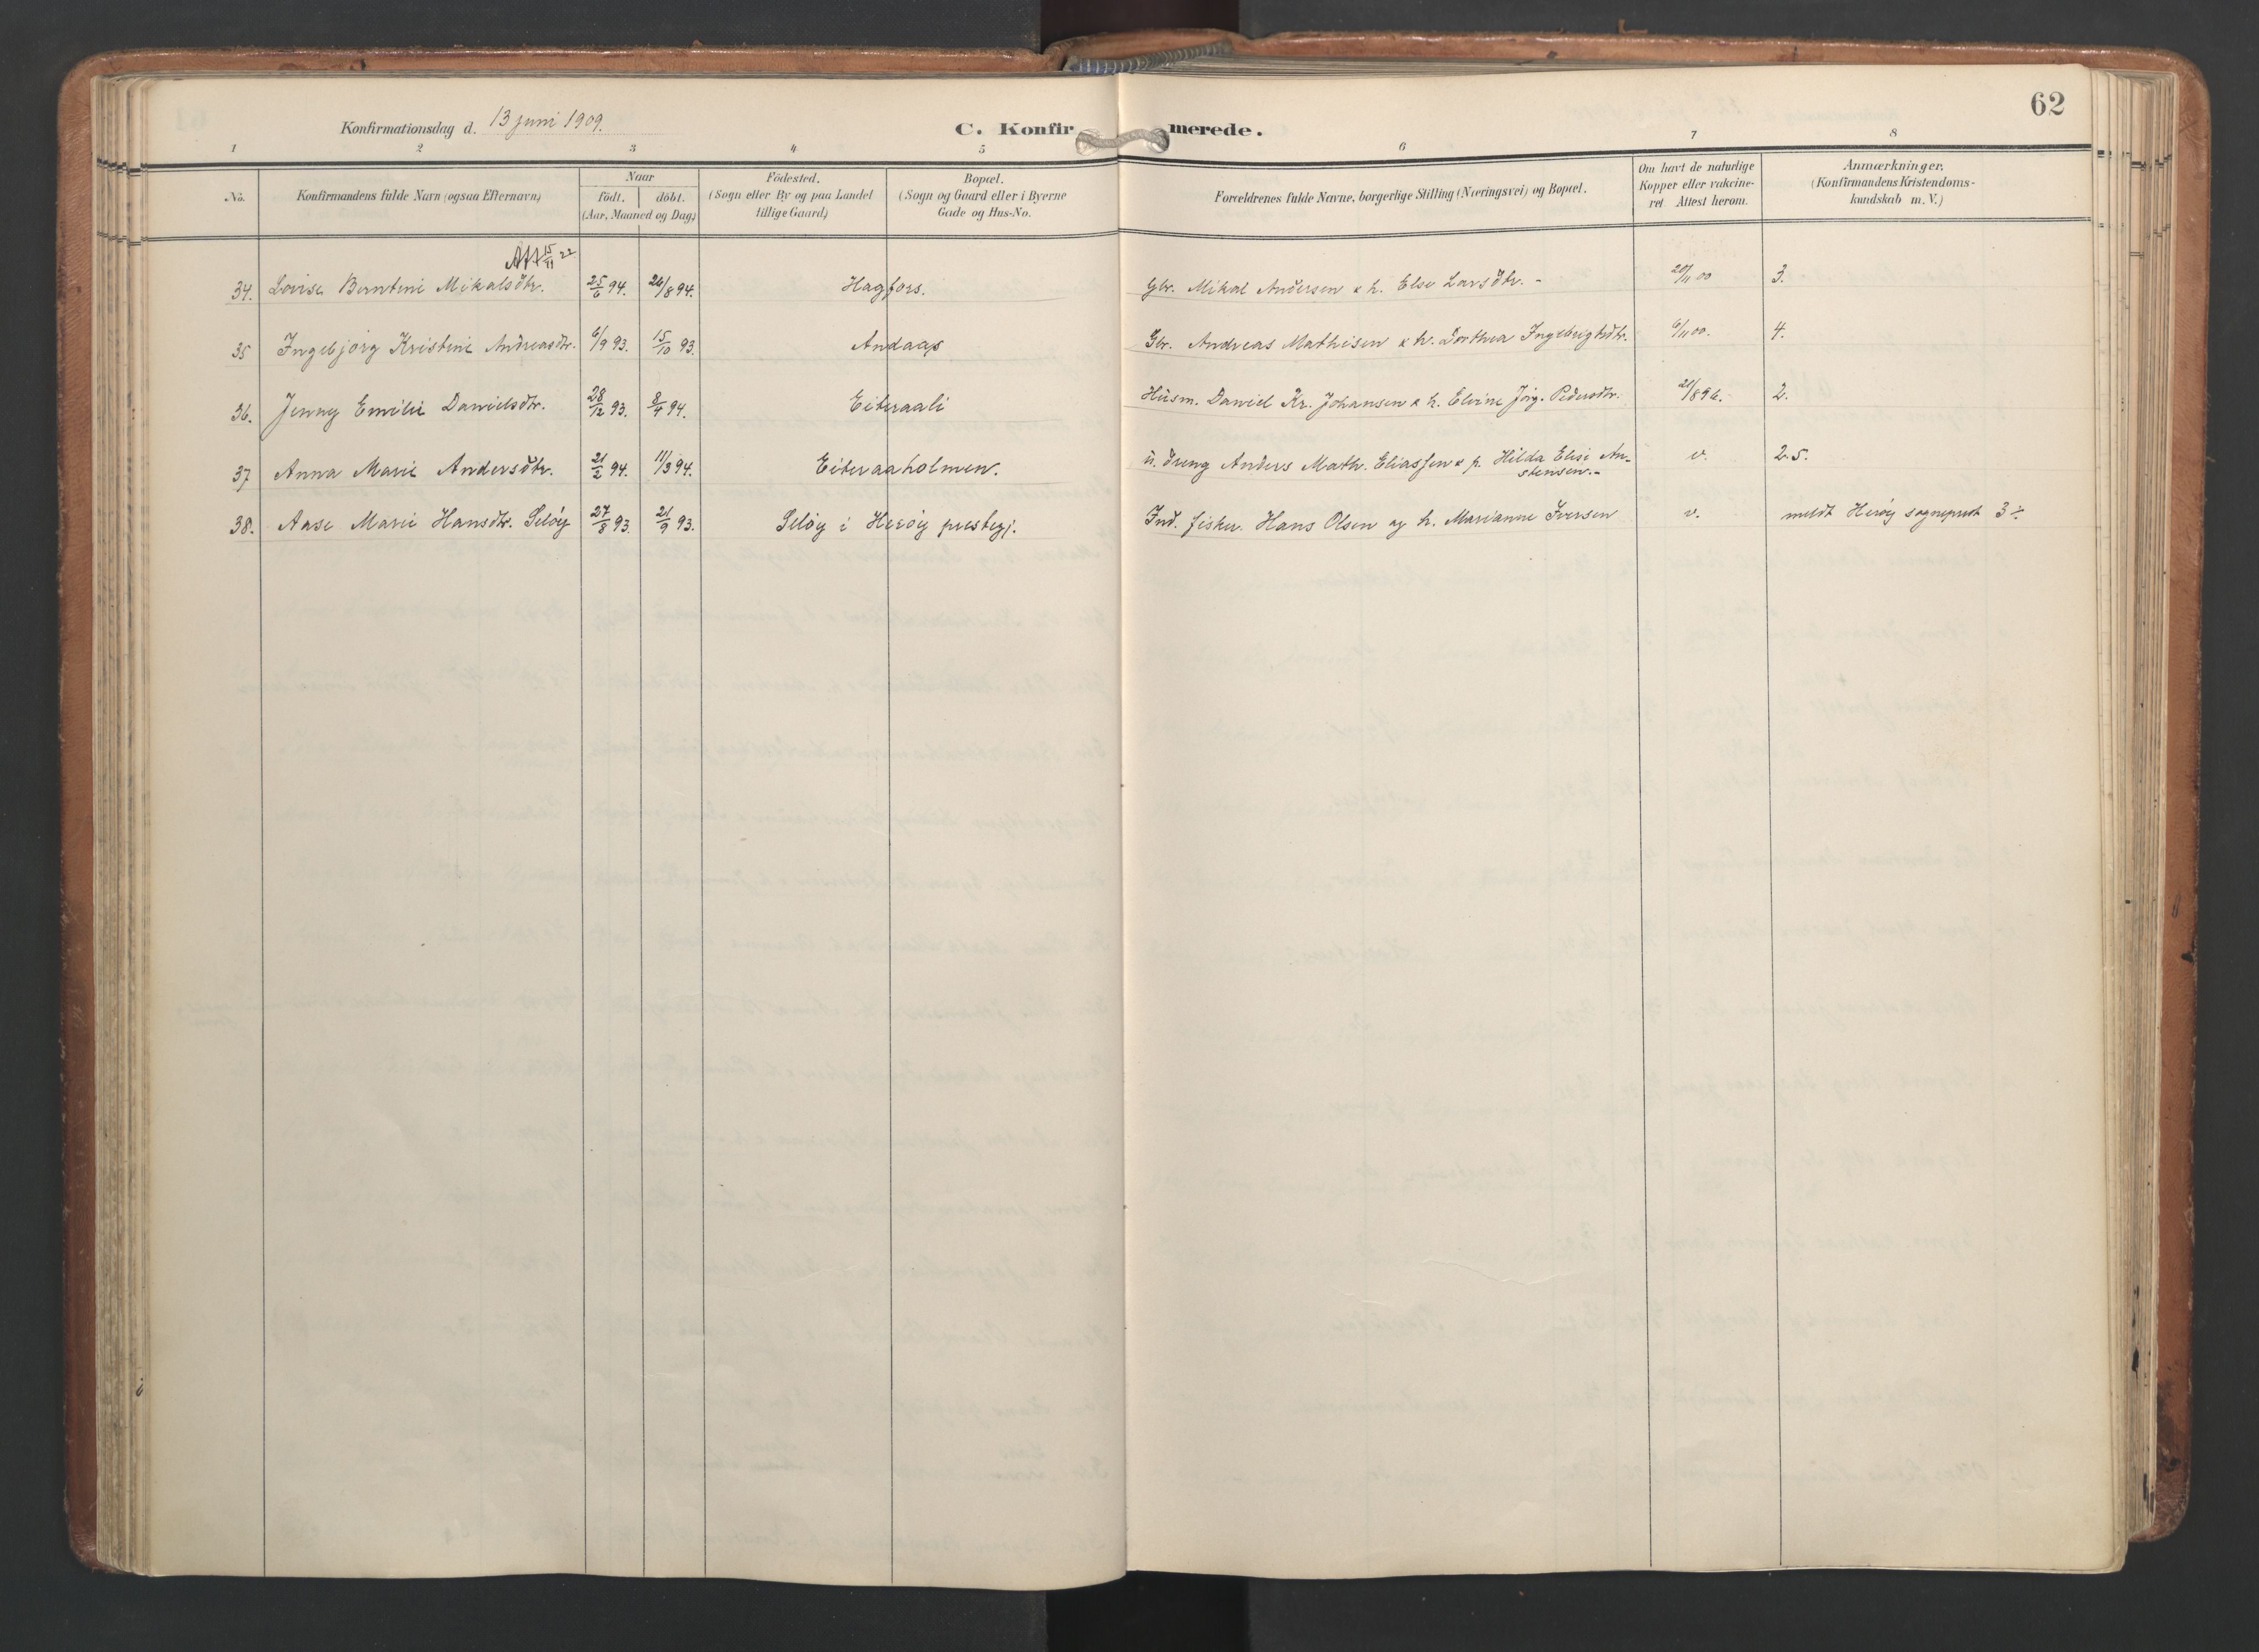 62
Konfirmationsdag d. 13 juni 1909.
C. Konfirmerede.
1 2 3 4 5 6 7 8
No.
Konfirmandens fulde Navn (ogsaa Efternavn)
Naar
födt. döbt.
(Aar, Maaned og Dag)
Födested.
(Sogn eller By og paa Landet
tillige Gaard)
Bopæl.
(Sogn og Gaard eller i Byerne
Gade og Hus-No.
Forældrenes fulde Navne, borgerlige Stilling (Næringsvei) og Bopæl.
Om havt de naturlige
Kopper eller vakcine-
ret. Attest herom.
Anmærkninger.
(Konfirmandens Kristendoms-
kundskab m. V.)
Att 15/11 22
34. Lovise Berntine Mikalsdtr. 25/6 94. 26/8 94. Hagfors. Gbr. Mikal Andersen & h. Else Larsdtr. - 20/11 00 3.
35 Ingebjörg Kristine Andreasdtr. 6/9 93. 15/10 93. Andaas Gbr. Andreas Mathisen & h. Dorthea Ingebrigtsdtr. 6/11 00. 4.
36. Jenny Emilie Danielsdtr. 28/12 93. 8/4 94. Eiteraali Husm. Daniel Kr. Johansen & h. Elvine Jörg. Pedersdtr. 21/8 96. 2.
37 Anna Marie Andersdtr. 21/2 94. 11/3 94. Eiteraaholmen. u. dreng Anders Math. Eliassen & p. Hilda Elise An-
stensen.- v. 2.5.
38. Aase Marie Hansdtr. Selöy 27/8 93. 21/9 93. Selöy i Heröy prestegj. Ind. fisker. Hans Olsen og h. Marianne Iversen v. meldt Heröy sogneprest 3 ÷